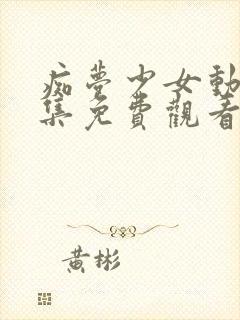 痴夢少女動
集免費觀看
黃彬